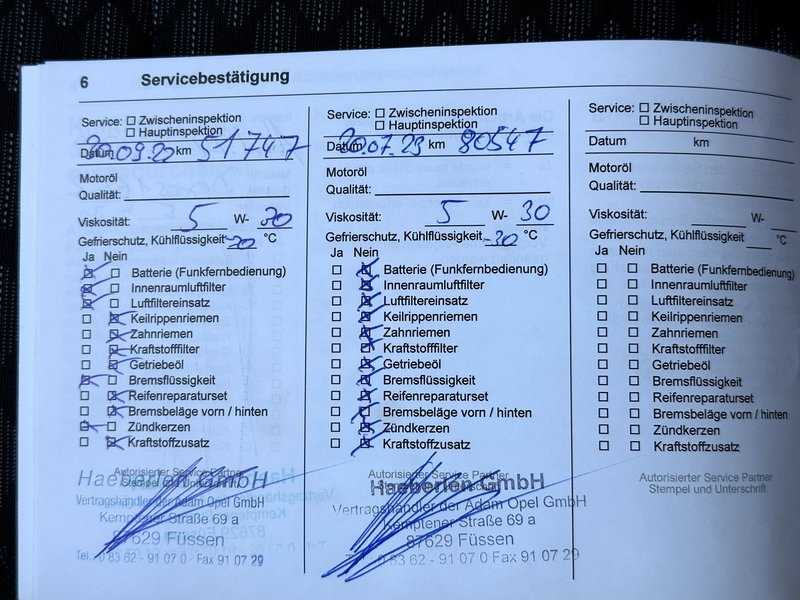 6 Servicebestätigung
Service: Zwischeninspektion
Hauptinspektion
Datum 20.09.20 km 51747
Motoröl
Qualität:
Viskosität: 5 W- 30
Gefrierschutz, Kühlflüssigkeit -30 °C
Ja Nein
Batterie (Funkfernbedienung)
Innenraumluftfilter
Luftfiltereinsatz
Keilrippenriemen
Zahnriemen
Kraftstofffilter
Getriebeöl
Bremsflüssigkeit
Reifenreparaturset
Bremsbeläge vorn / hinten
Zündkerzen
Kraftstoffzusatz
Autorisierter Service Partner
Stempel und Unterschrift
Haeberlen GmbH
Vertragshändler der Adam Opel GmbH
Kemptener Straße 69 a
87629 Füssen
Tel. 0 83 62 - 91 07 0 Fax 91 07 29
Service: Zwischeninspektion
Hauptinspektion
Datum 20.07.23 km 80547
Motoröl
Qualität:
Viskosität: 5 W- 30
Gefrierschutz, Kühlflüssigkeit -30 °C
Ja Nein
Batterie (Funkfernbedienung)
Innenraumluftfilter
Luftfiltereinsatz
Keilrippenriemen
Zahnriemen
Kraftstofffilter
Getriebeöl
Bremsflüssigkeit
Reifenreparaturset
Bremsbeläge vorn / hinten
Zündkerzen
Kraftstoffzusatz
Autorisierter Service Partner
Haeberlen GmbH
Vertragshändler der Adam Opel GmbH
Kemptener Straße 69 a
87629 Füssen
Tel. 0 83 62 - 91 07 0 Fax 91 07 29
Service: Zwischeninspektion
Hauptinspektion
Datum km
Motoröl
Qualität:
Viskosität: W-
Gefrierschutz, Kühlflüssigkeit °C
Ja Nein
Batterie (Funkfernbedienung)
Innenraumluftfilter
Luftfiltereinsatz
Keilrippenriemen
Zahnriemen
Kraftstofffilter
Getriebeöl
Bremsflüssigkeit
Reifenreparaturset
Bremsbeläge vorn / hinten
Zündkerzen
Kraftstoffzusatz
Autorisierter Service Partner
Stempel und Unterschrift